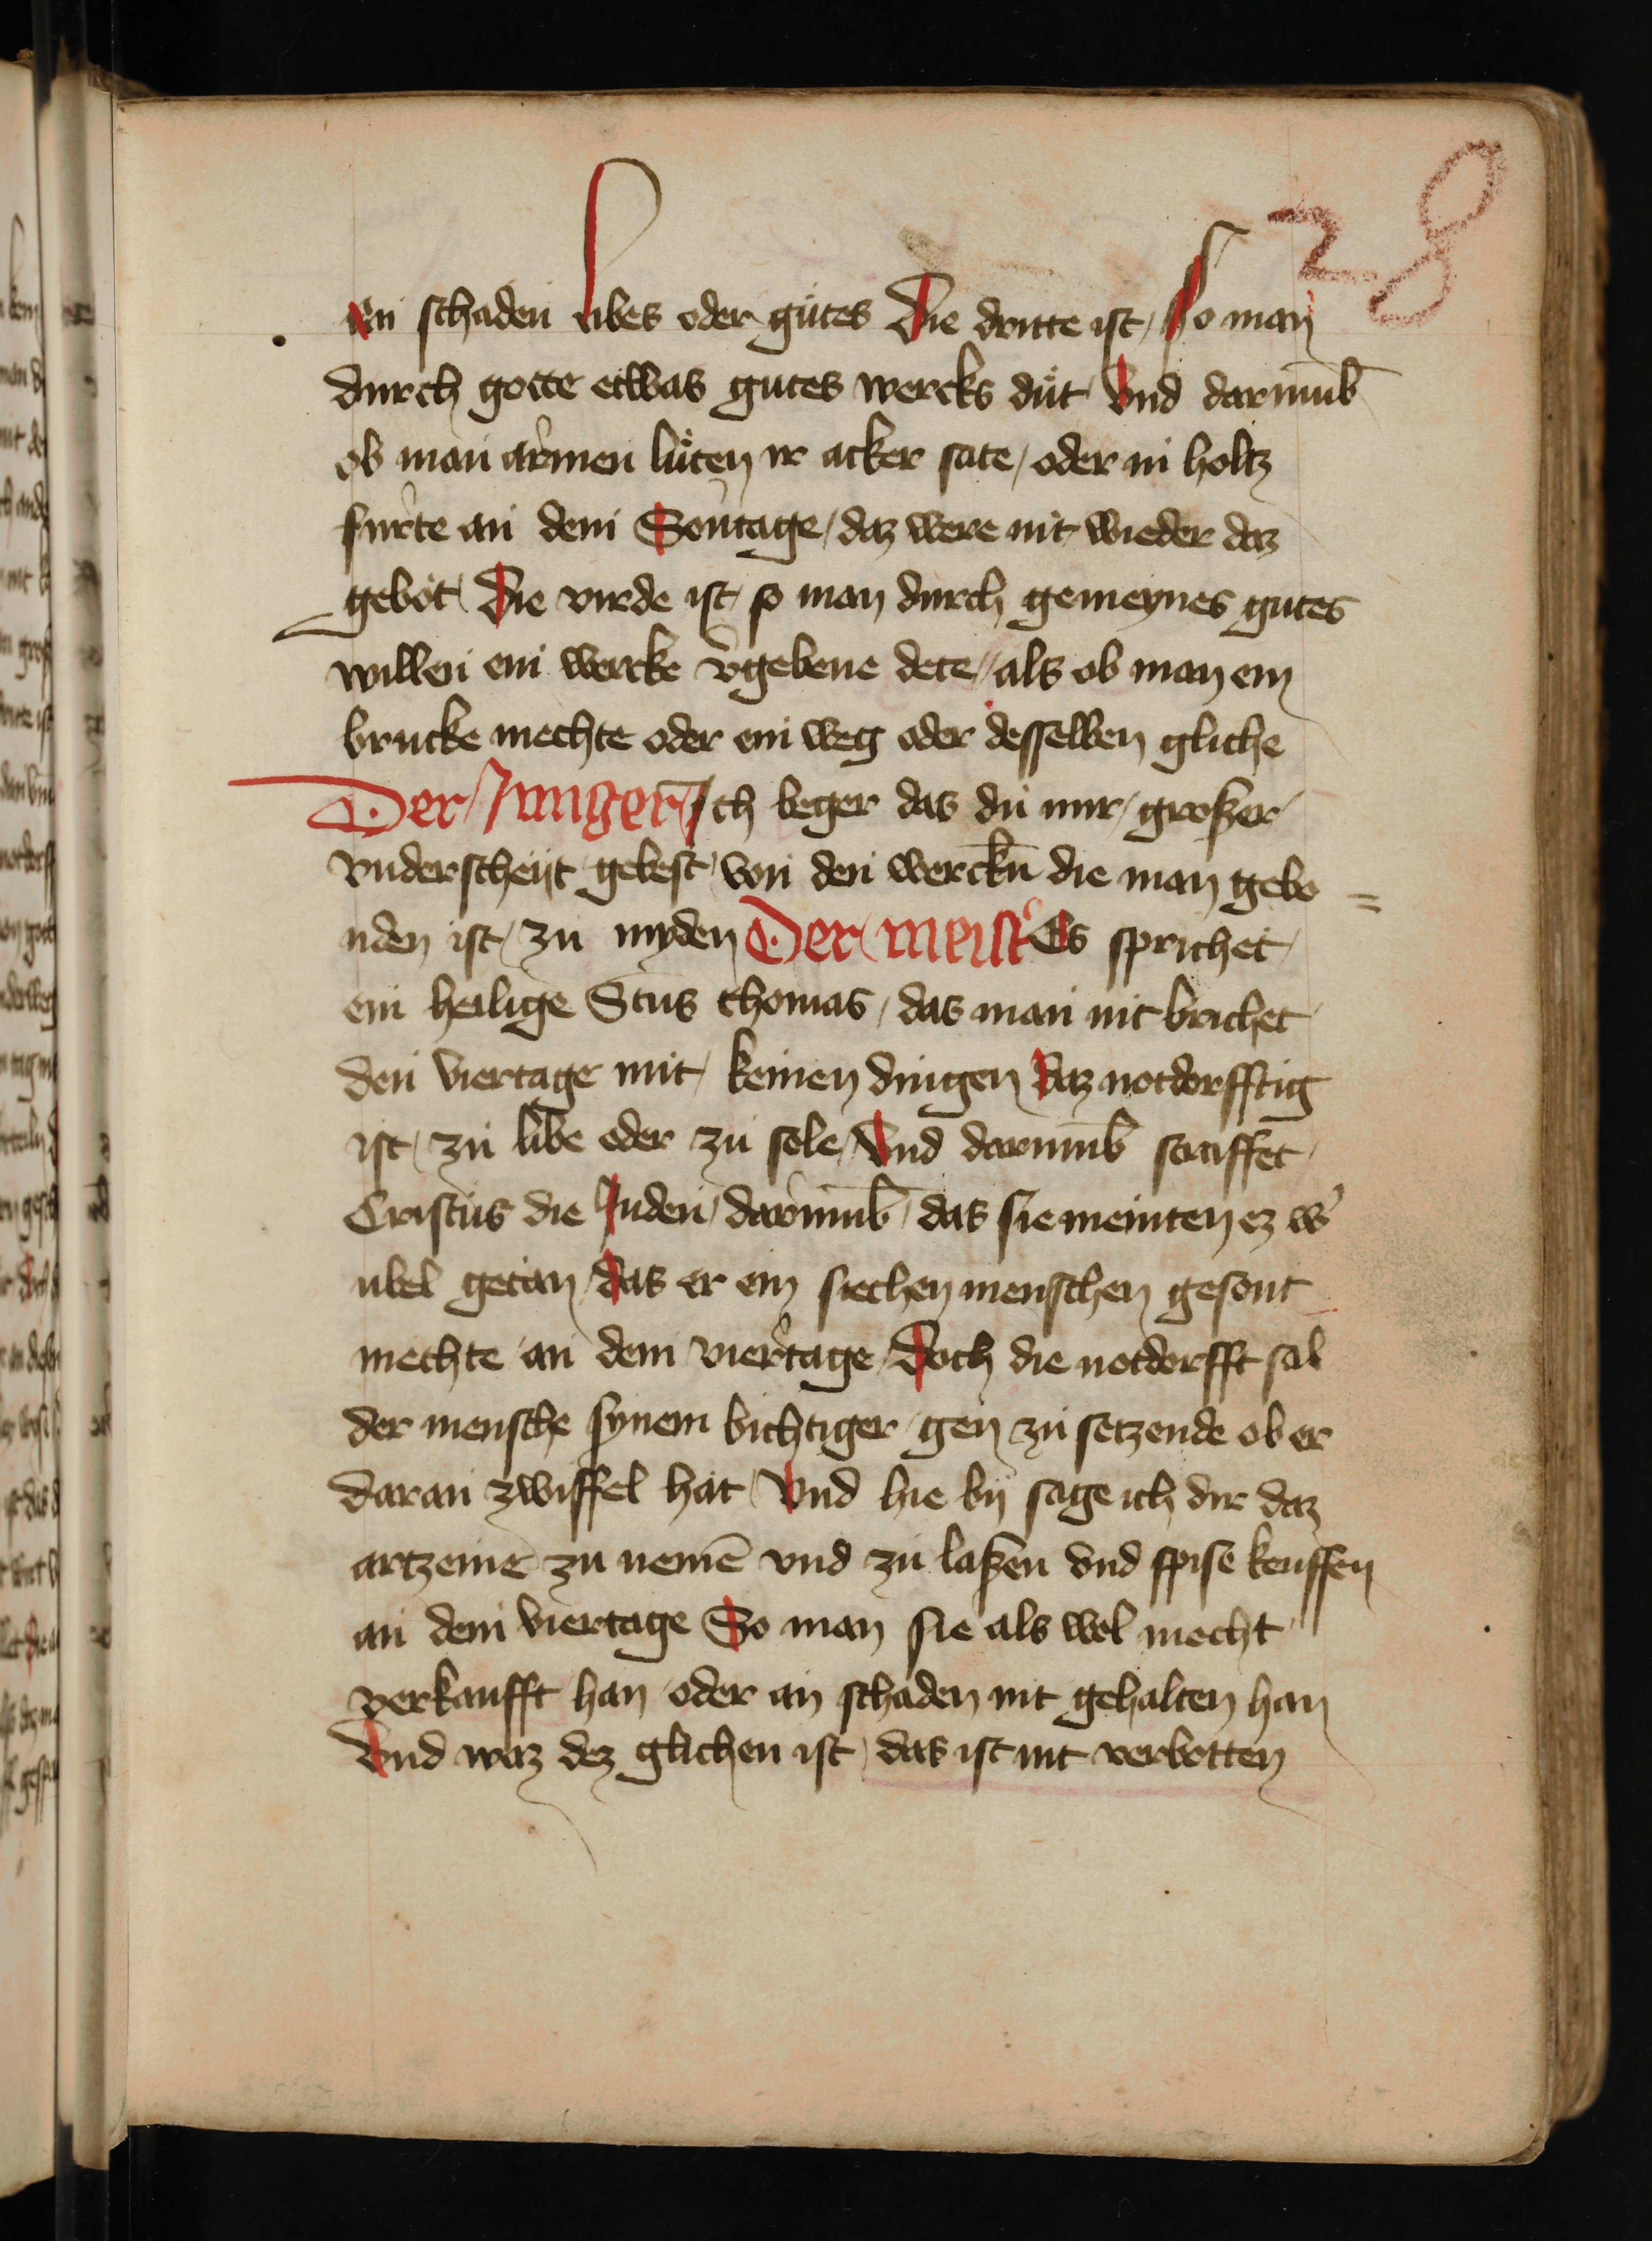 28
An schaden libes oder gůtes Die dritte ist / So man
durch gotte etwas gutes wercks důt Vnd darumb̄
ob man armen lůten ir acker sate / oder in holtz
furte an dem Sontage / daz were nit wieder daz
gebot Die virde ist so man durch gemeynes gutes
willen ein wercke v̉gebene dete // als ob man ein
brucke mechte oder ein weg oder desselben gliche
Der Junger Ich beger das du mir / groszer
vnderscheyt gebest von den werckn̄ die man gebo =
nden ist / zu myden Der meist̉ Es sprichet
ein heilige Sctūs thomas / das man nit brichet
den viertage mit / keinen dingen Daz notdorfftig
ist / zu libe oder zu sele / Vnd darumb̄ straffet
Cristus die Juden / darumb̄ / das sie meinten ez w̉
ubel getan / das er ein siechen menschen gesont
mechte an dem viertage / Doch die notdorfft sal
der mensche synem bichtiger gen zu setzende ob er
daran zwiffel hat Vnd hie by sage ich dir daz
artzenie zu nemē vnd zu laszen vnd spise keuffen
an dem viertage So man sie als wol mecht
verkaufft han oder an schaden nit gehalten han
Vnd waz dez glichen ist / das ist nit verbotten